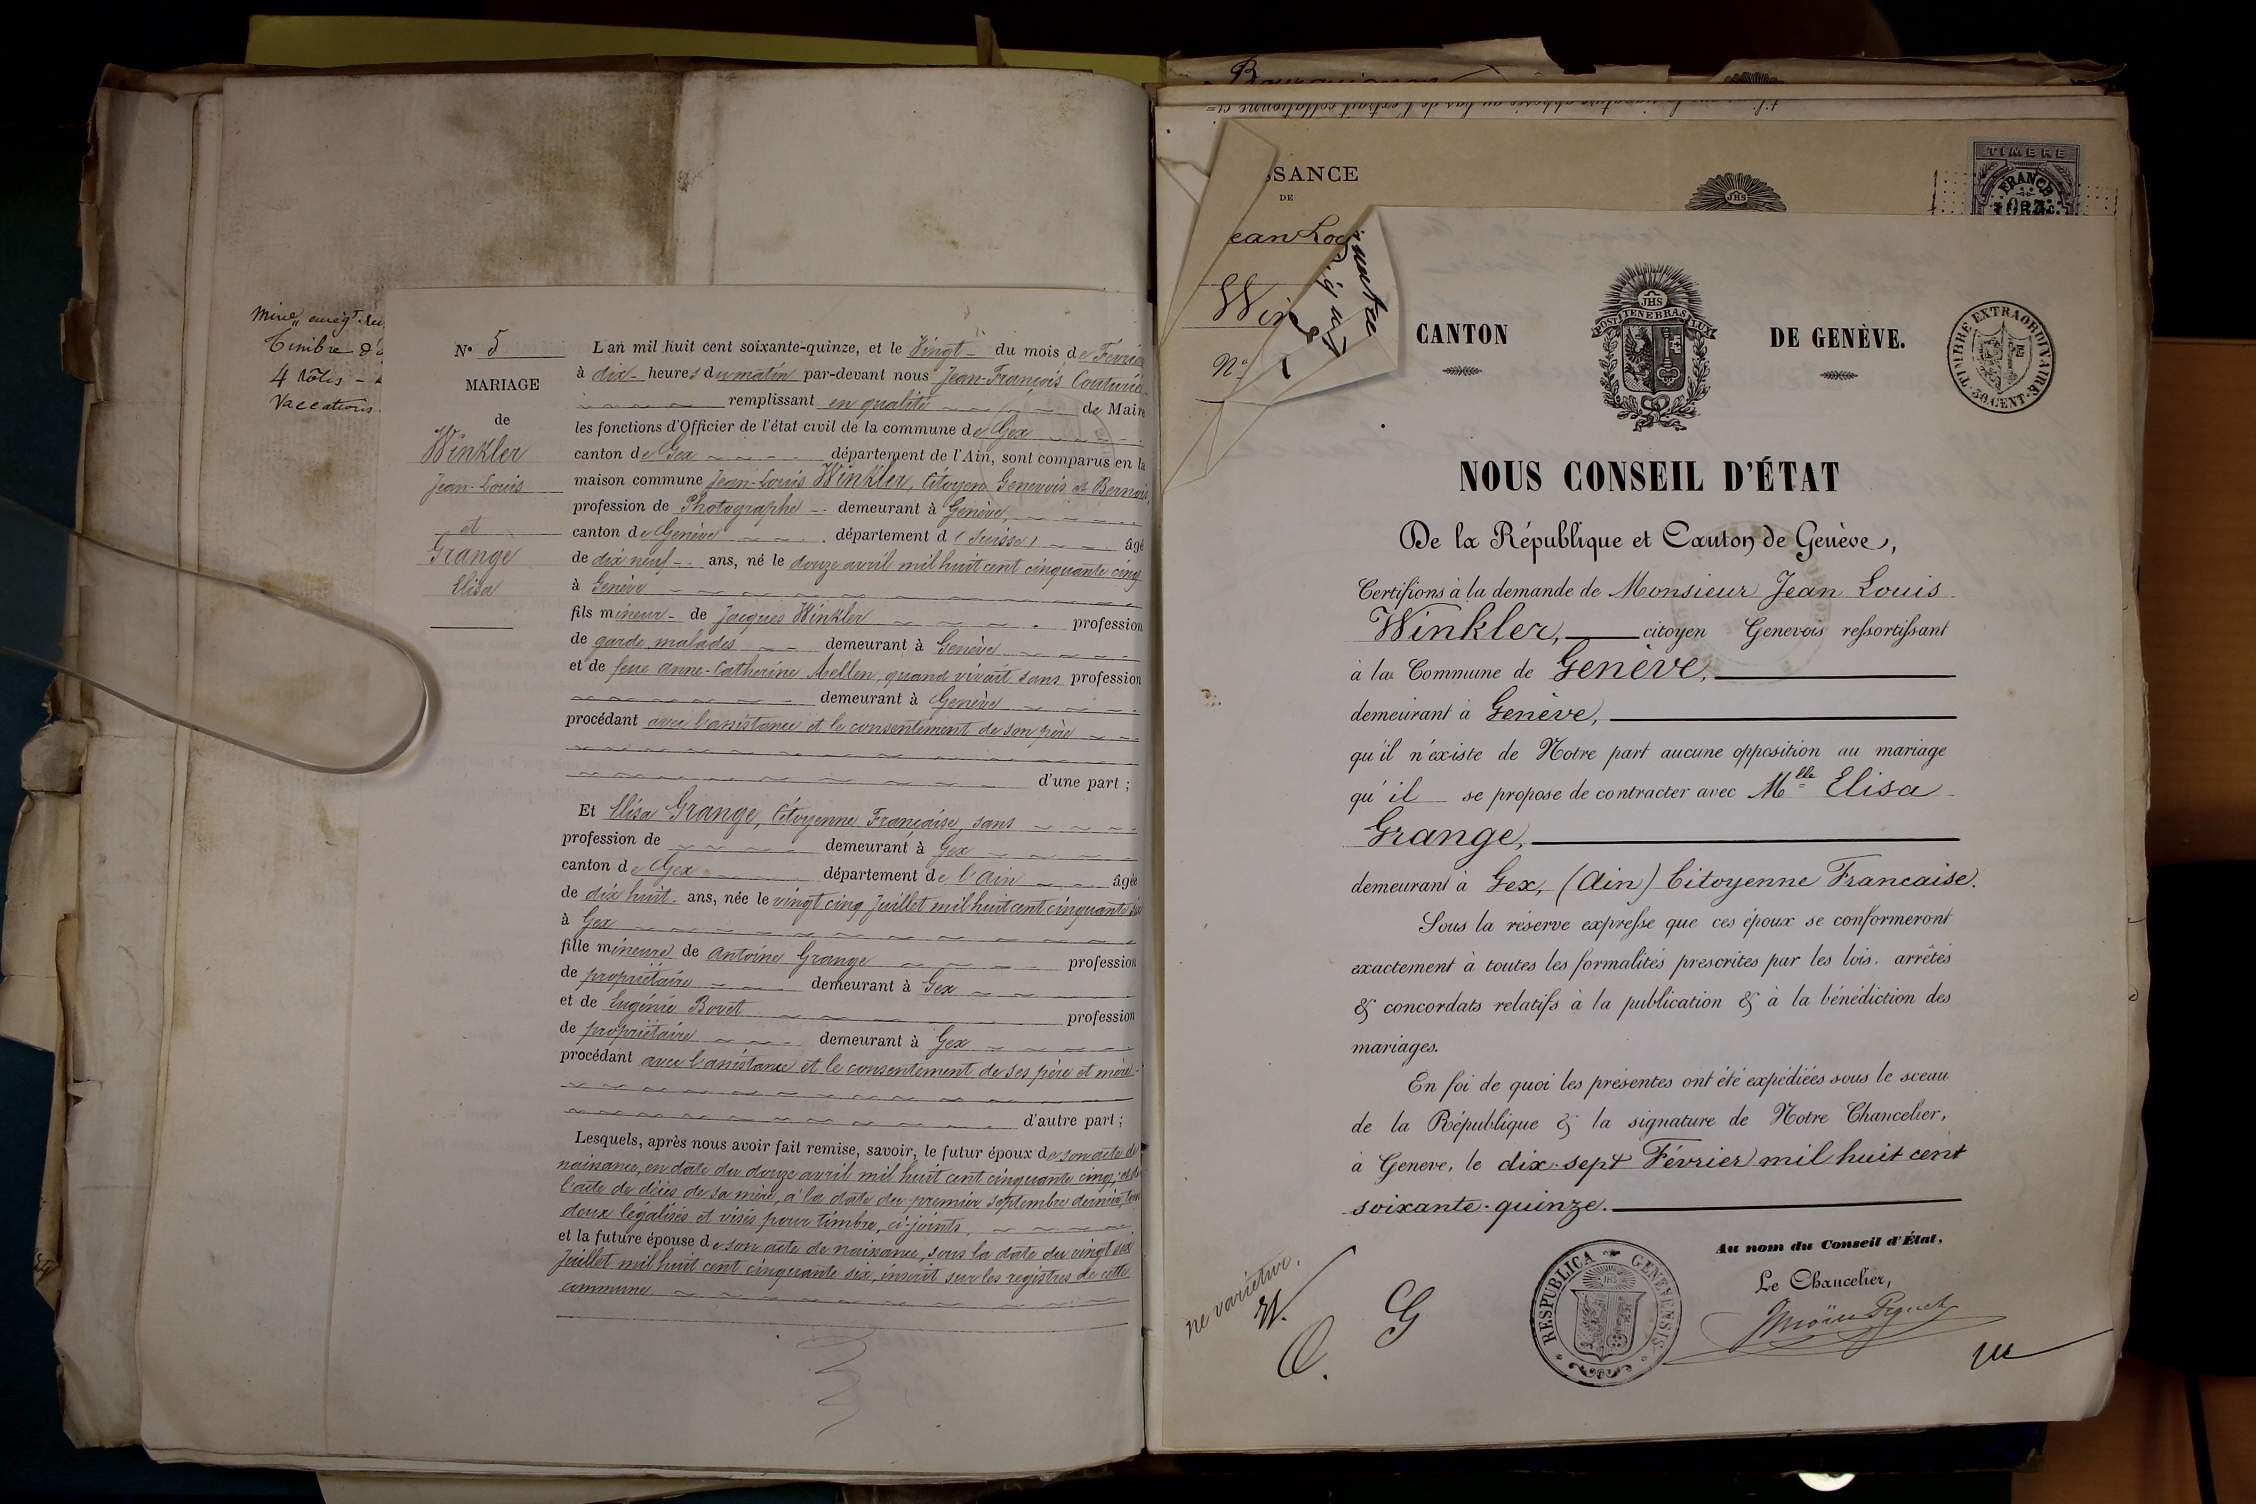 Timbre
4 Rôles
Vaccations
N° 5
MARIAGE
de
Winkler
Jean-Louis
et
Grange
Elisa
L'an mil huit cent soixante-quinze, et le Vingt du mois de Février
à dix heures du matin par-devant nous Jean-François Couturier
remplissant en qualité de Maire
les fonctions d'Officier de l'état civil de la commune de Gex
canton de Gex département de l'Ain, sont comparus en la
maison commune Jean-Louis Winkler, Citoyen Genevois et Bernois,
profession de Photographe demeurant à Genève,
canton de Genève département d (Suisse) âgé
de dix neuf ans, né le douze avril mil huit cent cinquante cinq
à Genève
fils mineur de Jacques Winkler profession
de garde malades demeurant à Genève
et de feue Anne-Catherine quand vivait sans profession
demeurant à Genève
procédant avec l'assistance et le consentement de son père
d'une part ;
Et Elisa Grange, Citoyenne Française, sans
profession de demeurant à Gex
canton de Gex département de l'Ain âgée
de dix huit ans, née le vingt cinq Juillet mil huit cent cinquante six
à Gex
fille mineure de Antoine Grange profession
de propriétaire demeurant à Gex
et de Eugénie Bovet profession
de propriétaire demeurant à Gex
procédant avec l'assistance et le consentement de ses père et mère
d'autre part ;
Lesquels, après nous avoir fait remise, savoir, le futur époux de son acte de
naissance, en date du douze avril mil huit cent cinquante cinq; et de
l'acte de décès de sa mère, à la date du premier septembre dernier, tous
deux légalisés et visés pour timbre, ci-joints,
et la future épouse de son acte de naissance, sous la date du vingt six
Juillet mil huit cent cinquante six, inscrit sur les registres de cette
commune
SSANCE
DE
ean Lo
Win
N°
TIMBRE
FRANCE
CANTON DE GENÈVE.
JHS
POST TENEBRAS LUX
TIMBRE EXTRAORDINAIRE
30 CENT.
NOUS CONSEIL D'ÉTAT
De la République et Canton de Genève,
Certifions à la demande de Monsieur Jean Louis
Winkler, citoyen Genevois ressortissant
à la Commune de Genève,
demeurant à Genève,
qu'il n'existe de Notre part aucune opposition au mariage
qu'il se propose de contracter avec Mlle Elisa
Grange,
demeurant à Gex, (Ain) Citoyenne Francaise.
Sous la réserve expresse que ces époux se conformeront
exactement à toutes les formalités prescrites par les lois, arrêtés
& concordats relatifs à la publication & à la bénédiction des
mariages.
En foi de quoi les présentes ont été expédiées sous le sceau
de la République & la signature de Notre Chancelier,
à Geneve, le dix-sept Février mil huit cent
soixante-quinze.
Au nom du Conseil d'État,
Le Chancelier,
RESPUBLICA GENEVENSIS
ne varietur.
W.
G